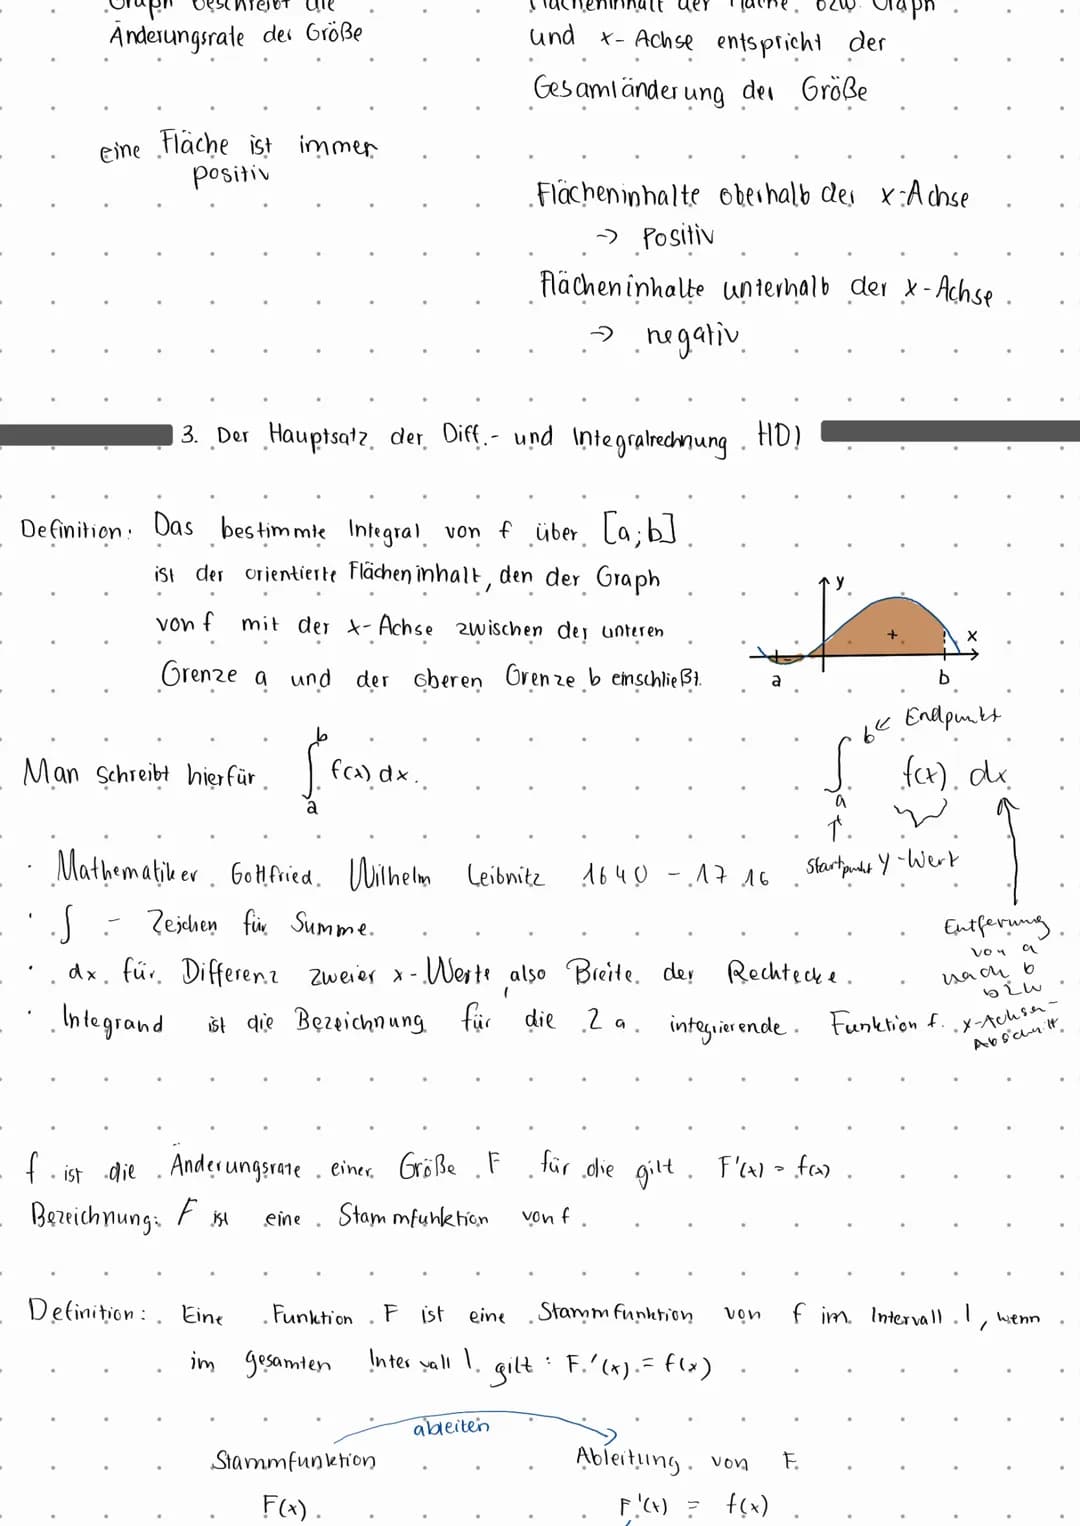 Graph beschreibt die
Änderungsrate der Größe
eine Fläche ist immer
positiv
Flächeninhalt der Fläche bzw. Graph
und x-Achse entspricht der
Gesamtänderung der Größe
Flächeninhalte oberhalb der x-Achse
→ Positiv
Flächeninhalte unterhalb der x-Achse
→ negativ
3. Der Hauptsatz der Diff.- und Integralrechnung HDI
Definition: Das bestimmte Integral von f über [a;b]
ist der orientierte Flächeninhalt, den der Graph
von f mit der x-Achse zwischen der unteren
Grenze a und der oberen Grenze b einschließt.
y
+
x
-
a
b
Man schreibt hierfür ∫ₐᵇ f(x) dx.
b ← Endpunkt
∫ f(x) dx
a
↑
Startpunkt y-Wert
Entferung
von a
nach b
bzw
x-Achsen-
Abschnitt
· Mathematiker Gottfried Wilhelm Leibnitz 1640 - 1716
· ∫ - Zeichen für Summe.
· dx für Differenz zweier x-Werte, also Breite der Rechtecke.
· Integrand ist die Bezeichnung für die z a integrierende Funktion f.
f ist die Änderungsrate einer Größe F für die gilt F'(x) = f(x)
Bezeichnung: F ist eine Stammfunktion von f.
Definition: Eine Funktion F ist eine Stammfunktion von f im Intervall I, wenn
im gesamten Intervall I gilt: F'(x) = f(x)
ableiten
Stammfunktion Ableitung von F
F(x) F'(x) = f(x)